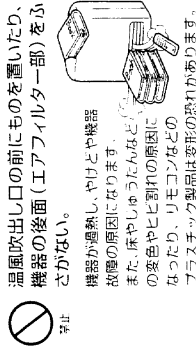 温風吹出し口の前にものを置いたり、
機器の後面(エアフィルター部)をふ
さがない。
禁止
機器が過熱し、やけどや機器
故障の原因になります。
また、床やじゅうたんなど
の変色やヒビ割れの原因に
なったり、リモコンなどの
プラスチック製品は変形の恐れがあります。